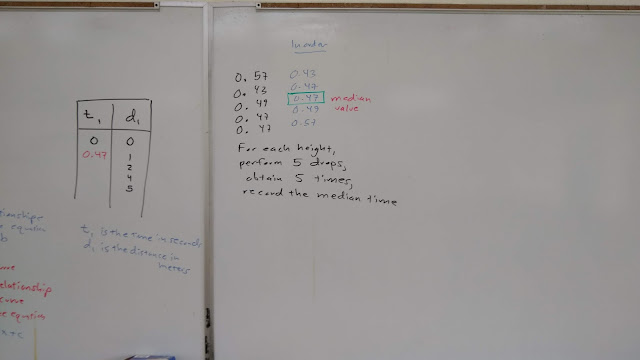 t₁ d₁
0 0
0.47 1
2
4
5
t₁ is the time in seconds
d₁ is the distance in
meters
In order
0.57 0.43
0.43 0.47
0.49 0.47 median
0.47 0.49 value
0.47 0.57
For each height,
perform 5 drops,
obtain 5 times,
record the median time